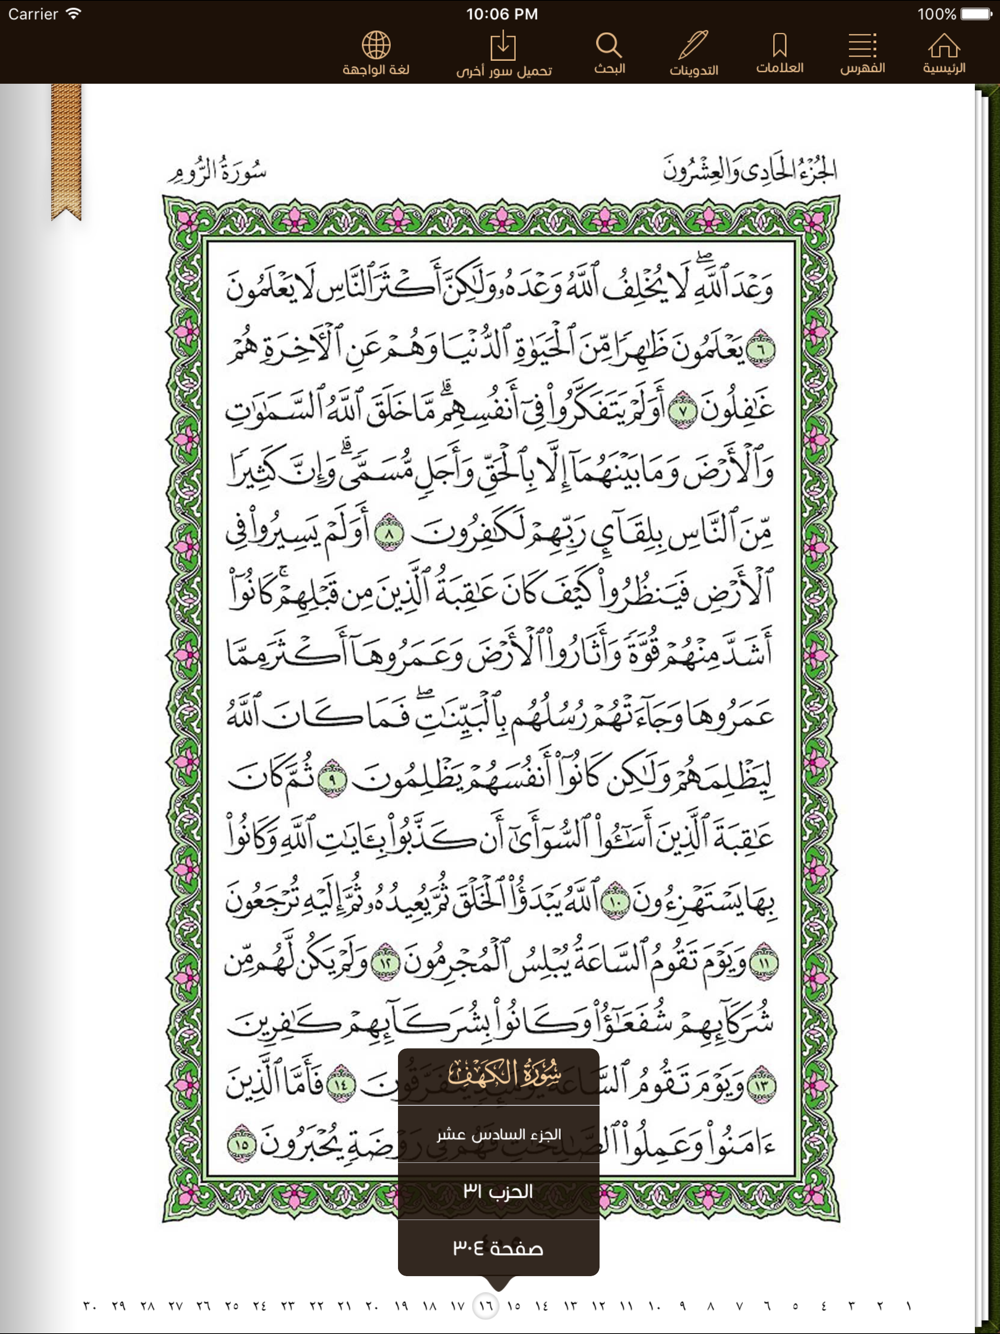 Carrier 10:06 PM 100%
الرئيسية الفهرس العلامات التدوينات البحث تحميل سور أخرى لغة الواجهة
الجُزْءُ الحَادِى وَالعِشْرُونَ سُورَةُ الرُّومِ
وَعْدَ ٱللَّهِۖ لَا يُخْلِفُ ٱللَّهُ وَعْدَهُۥ وَلَٰكِنَّ أَكْثَرَ ٱلنَّاسِ لَا يَعْلَمُونَ
٦ يَعْلَمُونَ ظَٰهِرًا مِّنَ ٱلْحَيَوٰةِ ٱلدُّنْيَا وَهُمْ عَنِ ٱلْءَاخِرَةِ هُمْ
غَٰفِلُونَ ٧ أَوَلَمْ يَتَفَكَّرُوا۟ فِىٓ أَنفُسِهِمۗ مَّا خَلَقَ ٱللَّهُ ٱلسَّمَٰوَٰتِ
وَٱلْأَرْضَ وَمَا بَيْنَهُمَآ إِلَّا بِٱلْحَقِّ وَأَجَلٍ مُّسَمًّىۗ وَإِنَّ كَثِيرًا
مِّنَ ٱلنَّاسِ بِلِقَآئِ رَبِّهِمْ لَكَٰفِرُونَ ٨ أَوَلَمْ يَسِيرُوا۟ فِى
ٱلْأَرْضِ فَيَنظُرُوا۟ كَيْفَ كَانَ عَٰقِبَةُ ٱلَّذِينَ مِن قَبْلِهِمْۚ كَانُوٓا۟
أَشَدَّ مِنْهُمْ قُوَّةً وَأَثَارُوا۟ ٱلْأَرْضَ وَعَمَرُوهَآ أَكْثَرَ مِمَّا
عَمَرُوهَا وَجَآءَتْهُمْ رُسُلُهُم بِٱلْبَيِّنَٰتِۖ فَمَا كَانَ ٱللَّهُ
لِيَظْلِمَهُمْ وَلَٰكِن كَانُوٓا۟ أَنفُسَهُمْ يَظْلِمُونَ ٩ ثُمَّ كَانَ
عَٰقِبَةَ ٱلَّذِينَ أَسَٰٓـُٔوا۟ ٱلسُّوٓأَىٰٓ أَن كَذَّبُوا۟ بِـَٔايَٰتِ ٱللَّهِ وَكَانُوا۟
بِهَا يَسْتَهْزِءُونَ ١٠ ٱللَّهُ يَبْدَؤُا۟ ٱلْخَلْقَ ثُمَّ يُعِيدُهُۥ ثُمَّ إِلَيْهِ تُرْجَعُونَ
١١ وَيَوْمَ تَقُومُ ٱلسَّاعَةُ يُبْلِسُ ٱلْمُجْرِمُونَ ١٢ وَلَمْ يَكُن لَّهُم مِّن
شُرَكَآئِهِمْ شُفَعَٰٓؤُا۟ وَكَانُوا۟ بِشُرَكَآئِهِمْ كَٰفِرِينَ
١٣ وَيَوْمَ تَقُومُ ٱلسَّاعَةُ يَوْمَئِذٍ يَتَفَرَّقُونَ ١٤ فَأَمَّا ٱلَّذِينَ
ءَامَنُوا۟ وَعَمِلُوا۟ ٱلصَّٰلِحَٰتِ فَهُمْ فِى رَوْضَةٍ يُحْبَرُونَ ١٥
سُورَةُ الكَهْفِ
الجزء السادس عشر
الحزب ٣١
صفحة ٣٠٤
١ ٢ ٣ ٤ ٥ ٦ ٧ ٨ ٩ ١٠ ١١ ١٢ ١٣ ١٤ ١٥ ١٦ ١٧ ١٨ ١٩ ٢٠ ٢١ ٢٢ ٢٣ ٢٤ ٢٥ ٢٦ ٢٧ ٢٨ ٢٩ ٣٠